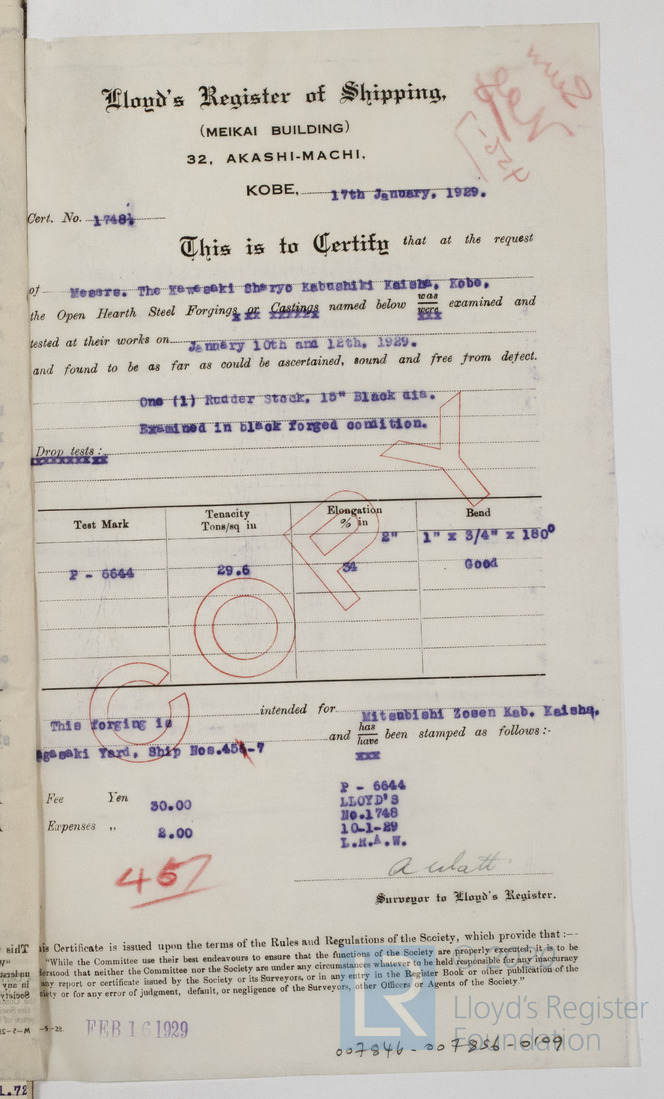 Lloyd's Register of Shipping,
(MEIKAI BUILDING)
32, AKASHI-MACHI,
KOBE, 17th January, 1929.
Cert. No. 1748
This is to Certify that at the request
of Messrs. The Kawasaki Sharyo Kabushiki Kaisha, Kobe,
the Open Hearth Steel Forgings or Castings named below was were examined and
tested at their works on January 10th and 12th, 1929.
and found to be as far as could be ascertained, sound and free from defect.
One (1) Rudder Stock, 15" Black dia.
Examined in black forged condition.
Drop tests:
Test Mark Tenacity Tons/sq in Elongation % in 2" Bend 1" x 3/4" x 180°
P - 6644 29.6 34 Good
COPY
This forging is intended for Mitsubishi Zosen Kab. Kaisha,
agasaki Yard, Ship Nos. -7 and has have been stamped as follows:-
Fee Yen 30.00
Expenses „ 2.00
P - 6644
LLOYD'S
No.1748
10-1-29
L.R.A.W.
457
A Watt
Surveyor to Lloyd's Register.
is Certificate is issued upon the terms of the Rules and Regulations of the Society, which provide that :—
"While the Committee use their best endeavours to ensure that the functions of the Society are properly executed, it is to be
derstood that neither the Committee nor the Society are under any circumstances whatever to be held responsible for any inaccuracy
any report or certificate issued by the Society or its Surveyors, or in any entry in the Register Book or other publication of the
iety or for any error of judgment, default, or negligence of the Surveyors, other Officers or Agents of the Society."
-5-28.
FEB 16 1929
LR
Lloyd's Register
Foundation
007846-007856-0109
1.72